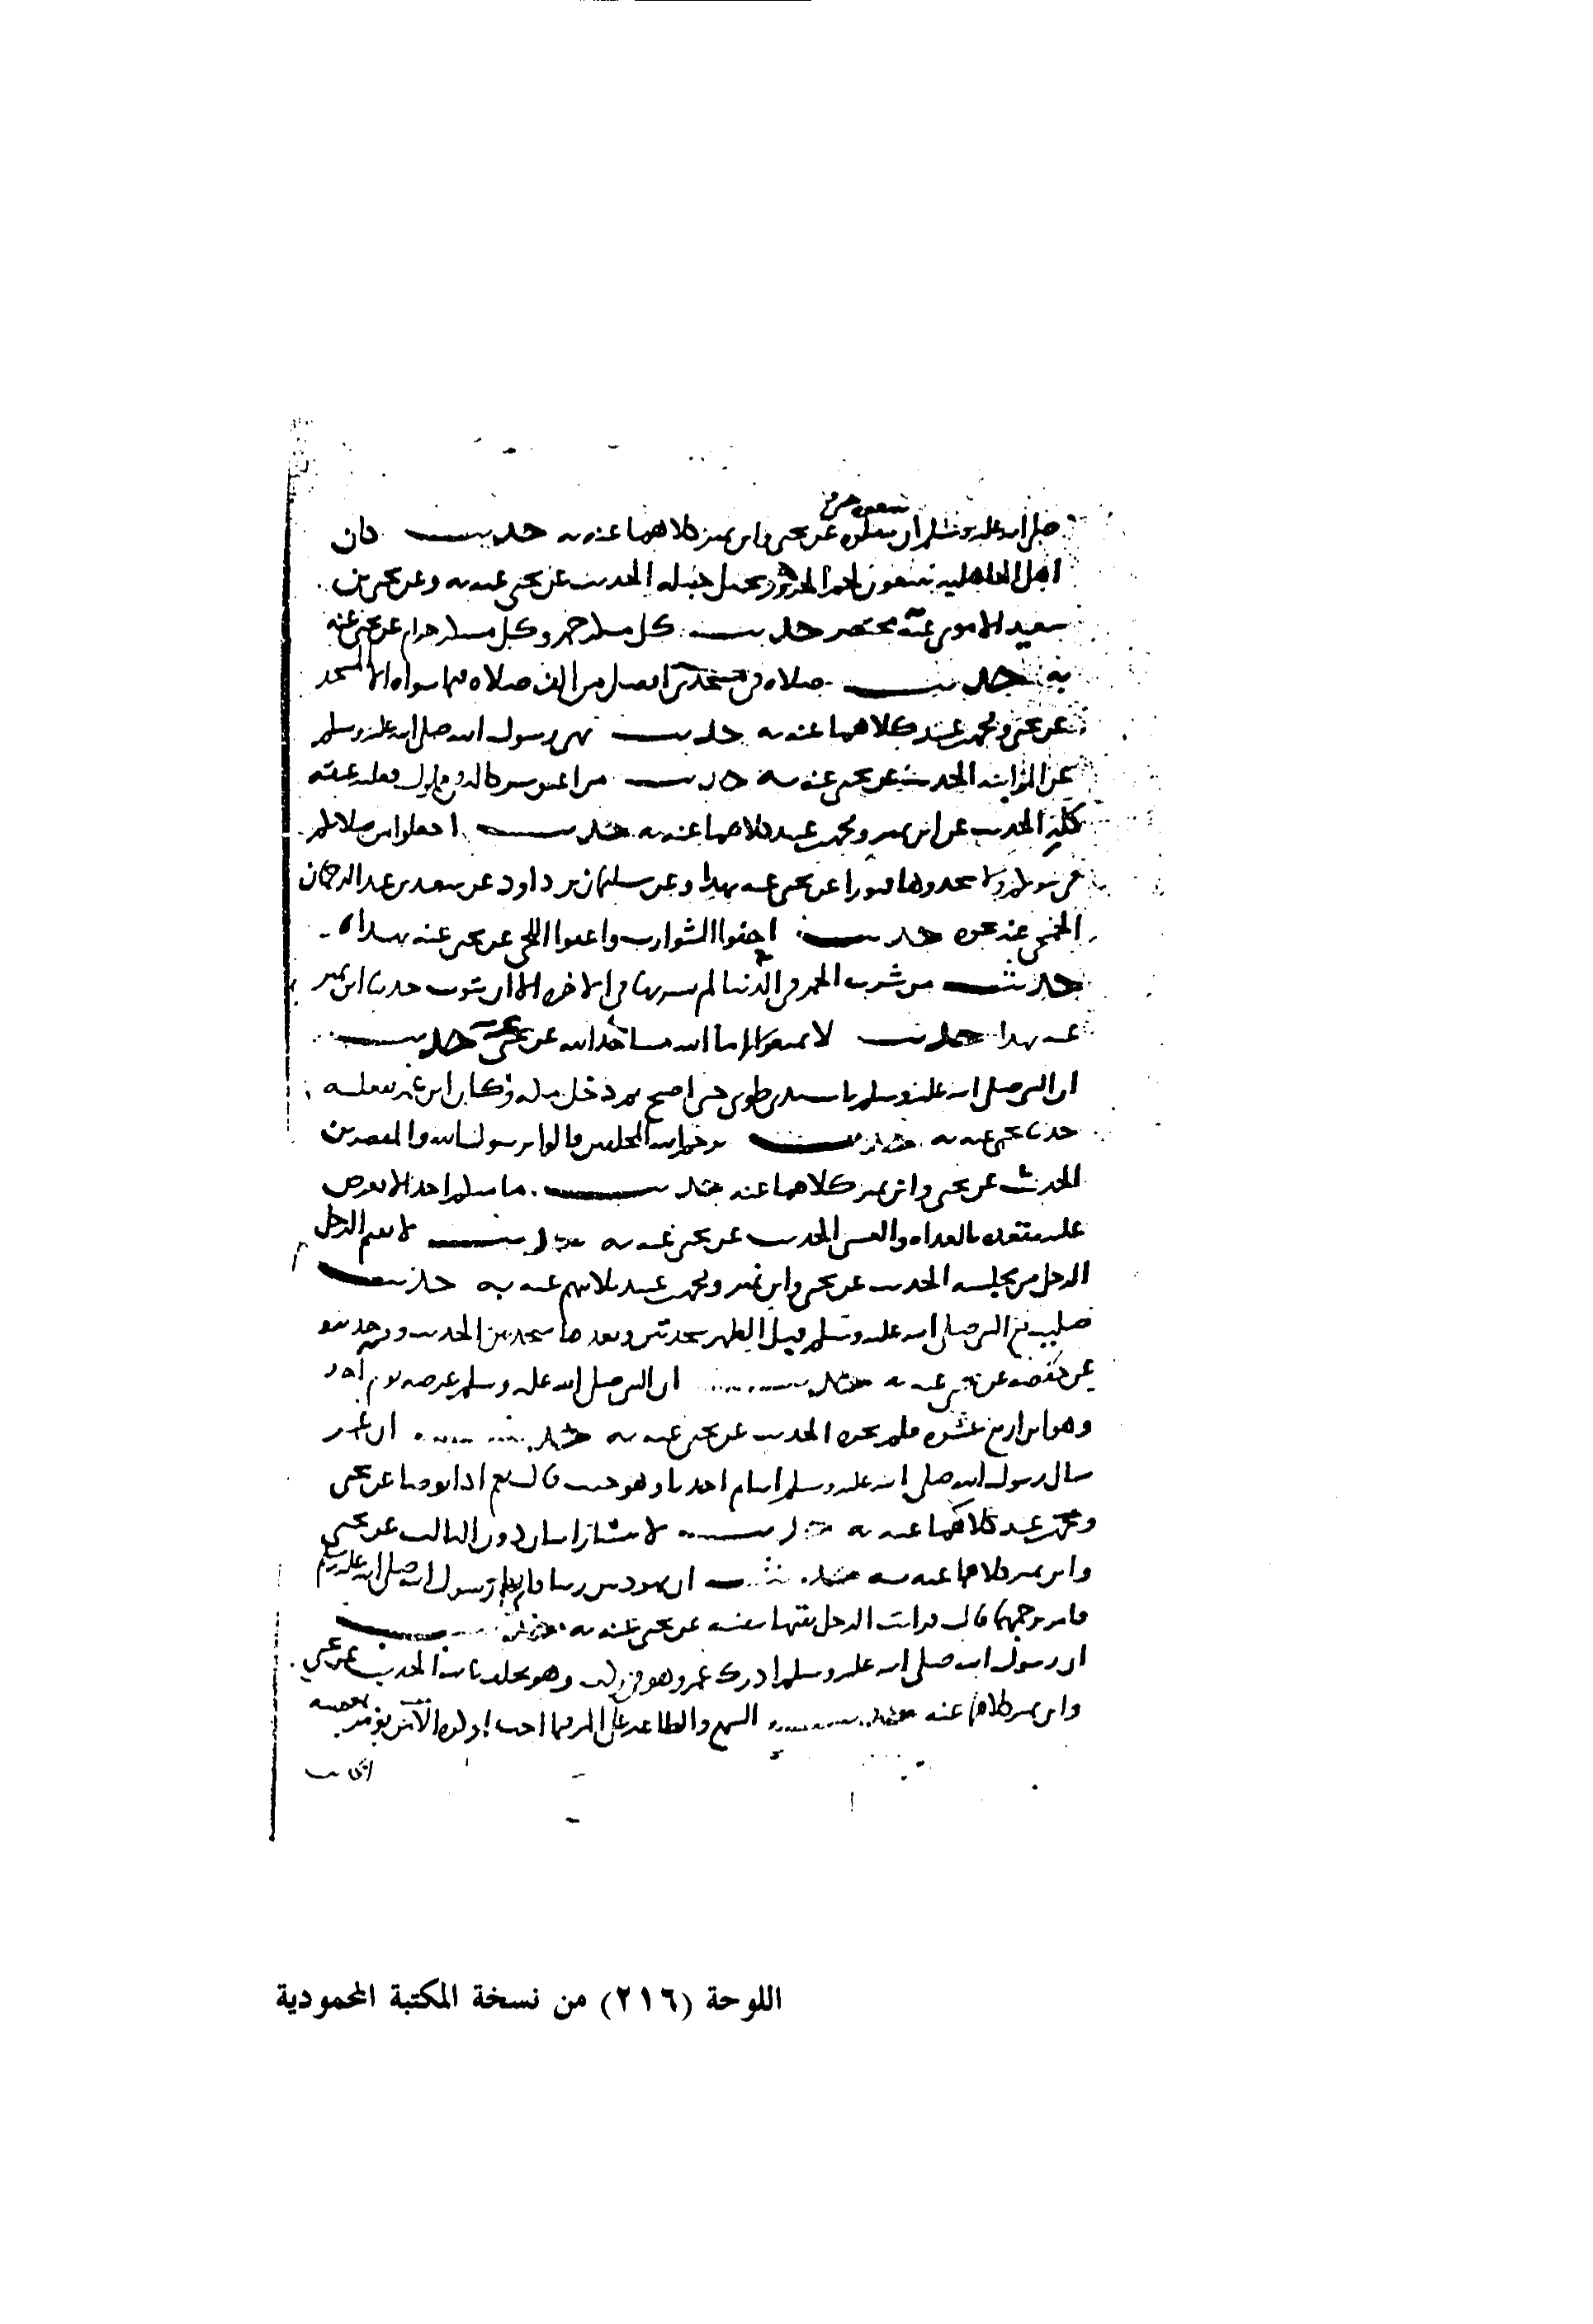 صلى الله عليه وسلم ان عن يحيى وابن نمير كلاهما عنه به حديث كان
اهل الجاهلية يتبعون لحم الجزور بحبل حبله الحديث عن يحيى عنه به وعن يحيى بن
سعيد الاموى عنه مختصر حديث كل مسكر خمر وكل مسكر حرام عن يحيى عنه
به حديث صلاه فى مسجدى افضل من الف صلاه فيما سواه الا المسجد
عن يحيى ومحمد بن عبيد كلاهما عنه به حديث نهى رسول الله صلى الله عليه وسلم
عن المزابنه الحديث عن يحيى عنه به حديث من اعتق شركا له فى مملوك فعليه عتقه
كله الحديث عن ابن نمير ومحمد بن عبيد كلاهما عنه به حديث اجعلوا من صلاتكم
فى بيوتكم ولا تتخذوها قبورا عن يحيى عنه بهذا وعن سليمان بن داود عن سعيد بن عبد الرحمان
الجمحى عنه نحوه حديث احفوا الشوارب واعفوا اللحى عن يحيى عنه بهذا
حديث من شرب الخمر فى الدنيا لم يشربها فى الاخره الا ان يتوب حدثنا ابن نمير
عنه بهذا حديث لا تمنعوا اما الله مساجد الله عن يحيى عنه حديث
ان النبى صلى الله عليه وسلم بات بذى طوى حتى اصبح ثم دخل مكه وكان ابن عمر يفعله
حدثنا يحيى عنه به حديث يرحم الله المحلقين قالوا يرسول الله والمقصرين
الحديث عن يحيى وابن نمير كلاهما عنه حديث ما مسلم احد الا يعرض
عليه مقعده بالغداه والعشى الحديث عن يحيى عنه به حديث لا يقم الرجل
الرجل من مجلسه الحديث عن يحيى وابن نمير ومحمد بن عبيد ثلاثتهم عنه به حديث
صليت مع النبى صلى الله عليه وسلم قبل الظهر سجدتين وبعدها سجدتين الحديث
عن حفصه عن يحيى عنه به حديث ان النبى صلى الله عليه وسلم عرضه يوم احد
وهو ابن اربع عشره فلم يجزه الحديث عن يحيى عنه به حديث ان عمر
سال رسول الله صلى الله عليه وسلم اينام احدنا وهو جنب قال نعم اذا توضا عن يحيى
ومحمد بن عبيد كلاهما عنه به حديث لا يتسارا اثنان دون الثالث عن يحيى
وابن نمير كلاهما عنه به حديث ان يهوديين زنيا فاتى بهما رسول الله صلى الله عليه وسلم
فامر برجمهما قال فرايت الرجل يقيها بنفسه عن يحيى عنه به حديث
ان رسول الله صلى الله عليه وسلم ادرك عمر وهو فى ركب وهو يحلف بابيه الحديث عن يحيى
وابن نمير كلاهما عنه حديث السمع والطاعه على المرء فيما احب او كره الا ان يؤمر بمعصيه
اللوحة (٢١٦) من نسخة المكتبة المحمودية